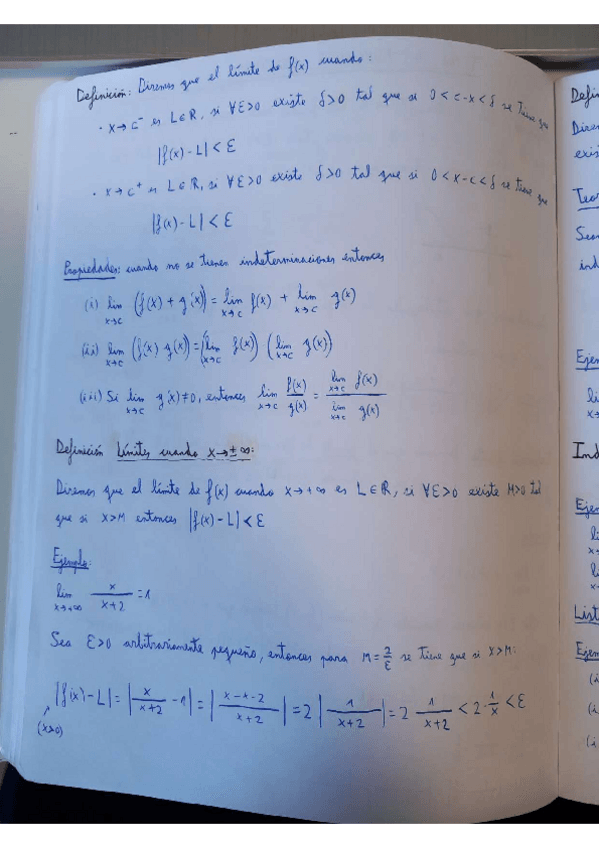 Definición: Diremos que el límite de f(x) cuando:
• x→c⁻ es L∈ℝ, si ∀ε>0 existe δ>0 tal que si 0<c-x<δ se tiene que
|f(x)-L|<ε
• x→c⁺ es L∈ℝ, si ∀ε>0 existe δ>0 tal que si 0<x-c<δ se tiene que
|f(x)-L|<ε
Propiedades: cuando no se tienen indeterminaciones entonces
(i) lim x→c (f(x) + g(x)) = lim x→c f(x) + lim x→c g(x)
(ii) lim x→c (f(x) g(x)) = (lim x→c f(x)) (lim x→c g(x))
(iii) Si lim x→c g(x)≠0, entonces lim x→c f(x)/g(x) = lim x→c f(x) / lim x→c g(x)
Definición Límites cuando x→±∞:
Diremos que el límite de f(x) cuando x→+∞ es L∈ℝ, si ∀ε>0 existe M>0 tal
que si x>M entonces |f(x)-L|<ε
Ejemplo:
lim x→+∞ x/(x+2) = 1
Sea ε>0 arbitrariamente pequeño, entonces para M=2/ε se tiene que si x>M:
|f(x)-L| = |x/(x+2) - 1| = |(x-x-2)/(x+2)| = 2|1/(x+2)| = 2 1/(x+2) < 2·1/x < ε
(x>0)
Defi
Dire
exis
Teo
Sea
ind
Eje
li
Ind
Ejem
li
x→
li
x→
List
Ejem
(i
(i
(i